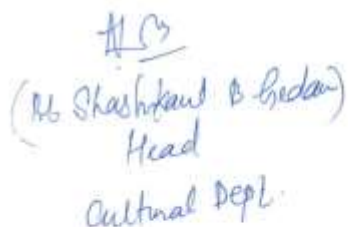 (Mr Shashikant B Gedam)
Head
Cultural Dept.